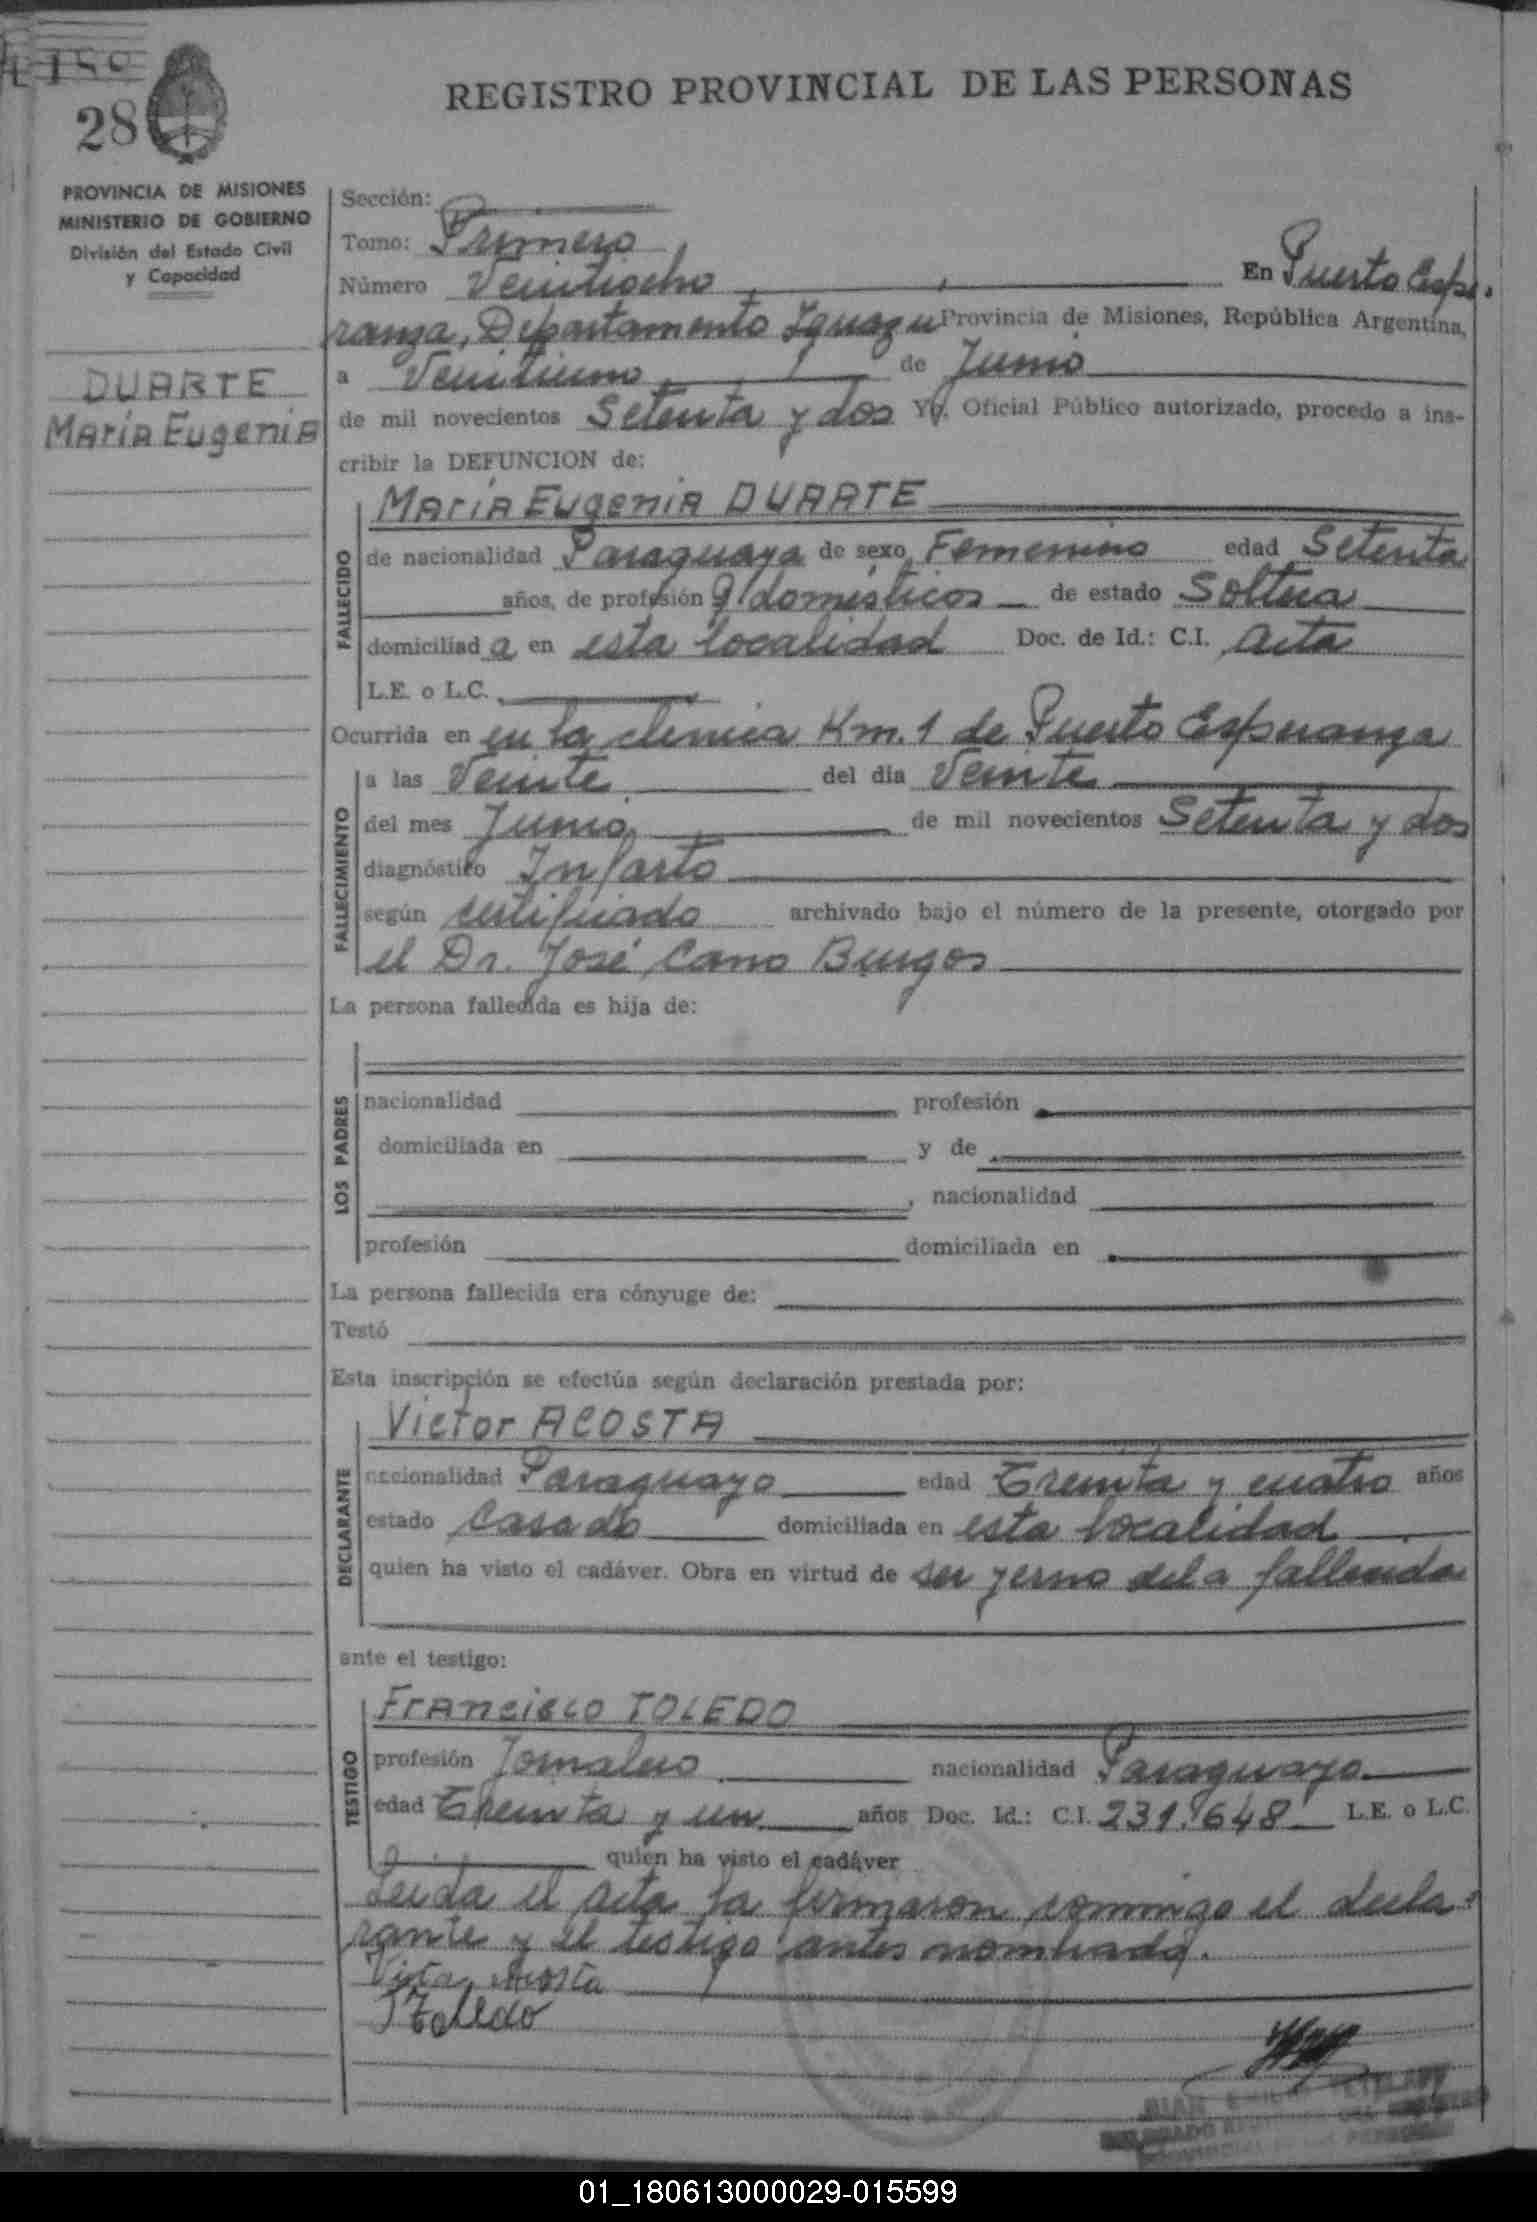 28
REGISTRO PROVINCIAL DE LAS PERSONAS
PROVINCIA DE MISIONES
MINISTERIO DE GOBIERNO
División del Estado Civil
y Capacidad
DUARTE
María Eugenia
Sección:
Tomo: Primero
Número Veintiocho En Puerto Espe-
ranza, Departamento Iguazu Provincia de Misiones, República Argentina,
a Veintiuno de Junio
de mil novecientos Setenta y dos Yo, Oficial Público autorizado, procedo a ins-
cribir la DEFUNCION de:
María Eugenia DUARTE
FALLECIDO
de nacionalidad Paraguaya de sexo Femenino edad Setenta
años, de profesión Q/domésticos de estado Soltera
domiciliad a en esta localidad Doc. de Id.: C.I. Acta
L.E. o L.C.
Ocurrida en en la clinica Km. 1 de Puerto Esperanza
FALLECIMIENTO
a las Veinte del dia Veinte
del mes Junio de mil novecientos Setenta y dos
diagnóstico Infarto
según certificado archivado bajo el número de la presente, otorgado por
el Dr. José Cano Burgos
La persona fallecida es hija de:
LOS PADRES
nacionalidad profesión
domiciliada en y de
, nacionalidad
profesión domiciliada en
La persona fallecida era cónyuge de:
Testó
Esta inscripción se efectúa según declaración prestada por:
Victor ACOSTA
DECLARANTE
nacionalidad Paraguayo edad Treinta y cuatro años
estado Casado domiciliada en esta localidad
quien ha visto el cadáver. Obra en virtud de ser yerno de la fallecida
ante el testigo:
Francisco TOLEDO
TESTIGO
profesión Jornalero nacionalidad Paraguayo
edad Treinta y un años Doc. Id.: C.I. 231.648 L.E. o L.C.
quien ha visto el cadáver
Leida el acta la firmaron conmigo el decla-
rante y el testigo antes nombrado.
Acosta
Toledo
JUAN
01_180613000029-015599